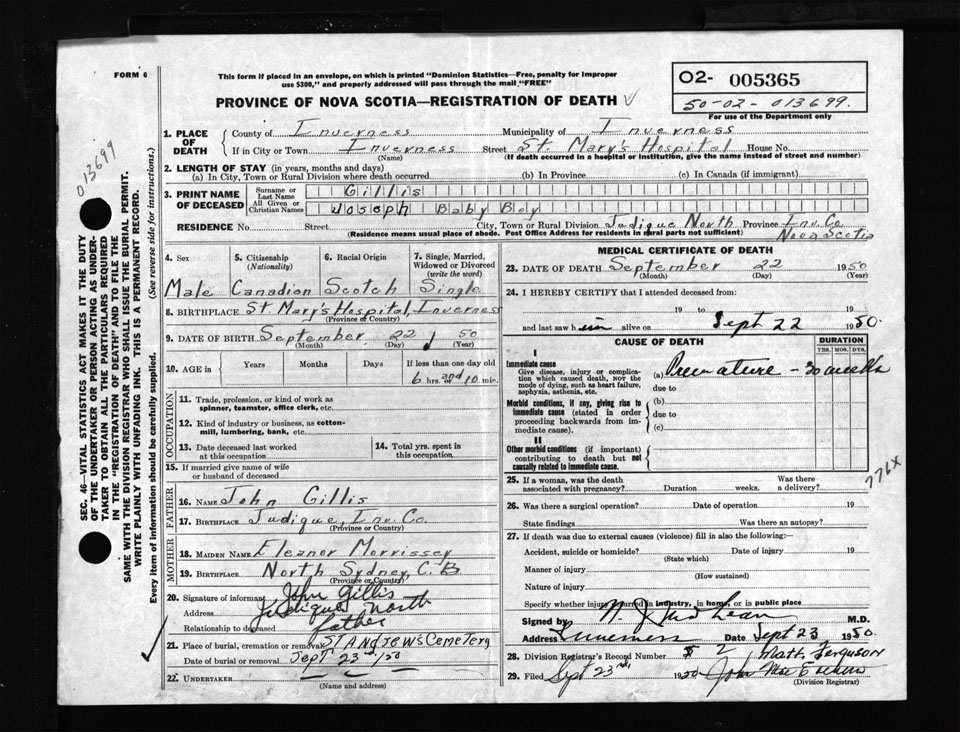 FORM 6
This form if placed in an envelope, on which is printed "Dominion Statistics—Free, penalty for improper
use $300," and properly addressed will pass through the mail "FREE"
O2- 005365
50-02-013699.
For use of the Department only
PROVINCE OF NOVA SCOTIA—REGISTRATION OF DEATH
013699
SEC. 46—VITAL STATISTICS ACT MAKES IT THE DUTY
OF THE UNDERTAKER OR PERSON ACTING AS UNDER-
TAKER TO OBTAIN ALL THE PARTICULARS REQUIRED
IN THE "REGISTRATION OF DEATH" AND TO FILE THE
SAME WITH THE DIVISION REGISTRAR WHO SHALL ISSUE THE BURIAL PERMIT.
WRITE PLAINLY WITH UNFADING INK. THIS IS A PERMANENT RECORD.
Every item of information should be carefully supplied. (See reverse side for instructions.)
1. PLACE OF DEATH
County of Inverness Municipality of Inverness
If in City or Town Inverness Street St. Mary's Hospital House No.
(Name) (If death occurred in a hospital or institution, give the name instead of street and number)
2. LENGTH OF STAY (in years, months and days)
(a) In City, Town or Rural Division where death occurred (b) In Province (c) In Canada (if immigrant)
3. PRINT NAME OF DECEASED
Surname or Last Name Gillis
All Given or Christian Names Joseph Baby Boy
RESIDENCE No. Street City, Town or Rural Division Judique North Province Inv. Co.
Nova Scotia
(Residence means usual place of abode. Post Office Address for residents in rural parts not sufficient)
4. Sex 5. Citizenship (Nationality) 6. Racial Origin 7. Single, Married, Widowed or Divorced (write the word)
Male Canadian Scotch Single
8. BIRTHPLACE St. Mary's Hospital, Inverness
(Province or Country)
9. DATE OF BIRTH September 22 1950
(Month) (Day) (Year)
10. AGE in Years Months Days If less than one day old
6 hrs. and 10 min.
OCCUPATION
11. Trade, profession, or kind of work as
spinner, teamster, office clerk, etc.
12. Kind of industry or business, as cotton-
mill, lumbering, bank, etc.
13. Date deceased last worked
at this occupation
14. Total yrs. spent in
this occupation
15. If married give name of wife
or husband of deceased
FATHER
16. NAME John Gillis
17. BIRTHPLACE Judique, Inv. Co.
(Province or Country)
MOTHER
18. MAIDEN NAME Eleanor Morrissey
19. BIRTHPLACE North Sydney, C. B
(Province or Country)
20. Signature of informant John Gillis
Address Judique North
Relationship to deceased father
21. Place of burial, cremation or removal St Andrews Cemetery
Date of burial or removal Sept 23rd/50
22. UNDERTAKER
(Name and address)
MEDICAL CERTIFICATE OF DEATH
23. DATE OF DEATH September 22 1950
(Month) (Day) (Year)
24. I HEREBY CERTIFY that I attended deceased from
19 to 19
and last saw him alive on Sept 22 1950.
CAUSE OF DEATH
DURATION
YRS. MOS. DYS.
I
Immediate cause
Give disease, injury or complica-
tion which caused death, NOT the
mode of dying, such as heart failure,
asphyxia, asthenia, etc.
(a) Premature - 30 weeks
due to
Morbid conditions, if any, giving rise to
immediate cause (stated in order
proceeding backwards from im-
mediate cause).
(b)
due to
(c)
II
Other morbid conditions (if important)
contributing to death but not
causally related to immediate cause.
776X
25. If a woman, was the death
associated with pregnancy? Duration weeks. Was there
a delivery?
26. Was there a surgical operation? Date of operation 19
State findings Was there an autopsy?
27. If death was due to external causes (violence) fill in also the following:—
Accident, suicide or homicide? Date of injury 19
(State which)
Manner of injury
(How sustained)
Nature of injury
Specify whether injury occurred in industry, in home, or in public place
Signed by M.D.
Address Inverness Date Sept 23 1950.
28. Division Registrar's Record Number 2 Matt. Ferguson
29. Filed Sept 23rd 1950 John
(Division Registrar)